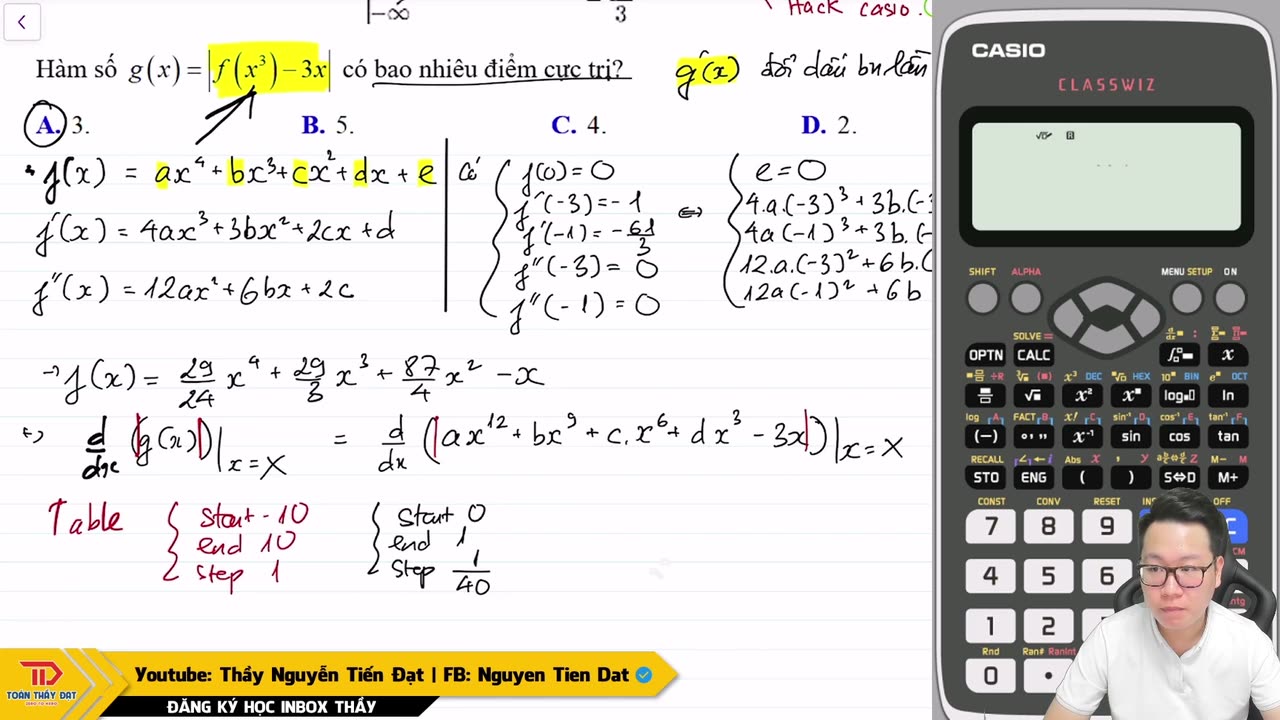 |-∞
3
Hack casio.
Hàm số g(x) = |f(x³) – 3x| có bao nhiêu điểm cực trị?
g'(x) đổi dấu bn lần
A. 3.
B. 5.
C. 4.
D. 2.
f(x) = ax⁴ + bx³ + cx² + dx + e
f'(x) = 4ax³ + 3bx² + 2cx + d
f''(x) = 12ax² + 6bx + 2c
Có
f(0) = 0
f'(-3) = -1
f'(-1) = -61/3
f''(-3) = 0
f''(-1) = 0
⇔
e = 0
4.a.(-3)³ + 3b.(-3
4a(-1)³ + 3b.(-
12.a.(-3)² + 6b.(
12a(-1)² + 6b
→ f(x) = 29/24 x⁴ + 29/3 x³ + 87/4 x² - x
↔ d/dx (|g(x)|)|x=X = d/dx (|ax¹² + bx⁹ + c.x⁶ + dx³ - 3x|)|x=X
Table
start -10
end 10
step 1
start 0
end 1
step 1/40
CASIO
CLASSWIZ
SHIFT ALPHA MENU SETUP ON
SOLVE =
OPTN CALC x
x³ DEC HEX 10ˣ BIN OCT
x² ln
log A FACT B x! C sin⁻¹ D cos⁻¹ E tan⁻¹ F
(−) x⁻¹ sin cos tan
RECALL ∠ i Abs x , y Z M− M
STO ENG ( ) S⇔D M+
CONST CONV RESET OFF
7 8 9
4 5 6
1 2
Rnd Ran# RanInt
0 •
TD
TOÁN THẦY ĐẠT
ZERO TO HERO
Youtube: Thầy Nguyễn Tiến Đạt | FB: Nguyen Tien Dat
ĐĂNG KÝ HỌC INBOX THẦY